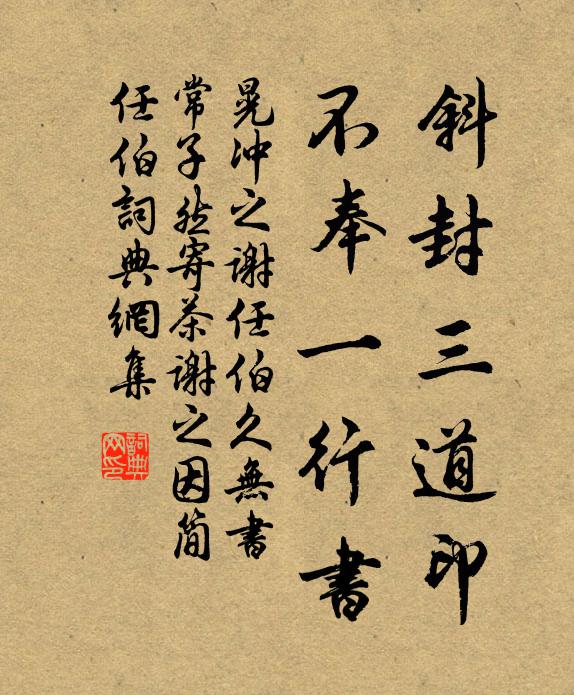 斜封三道印
不奉一行書
晁冲之谢任伯久無書
常子然寄茶谢之因简
任伯詞典網集
詞典
网印